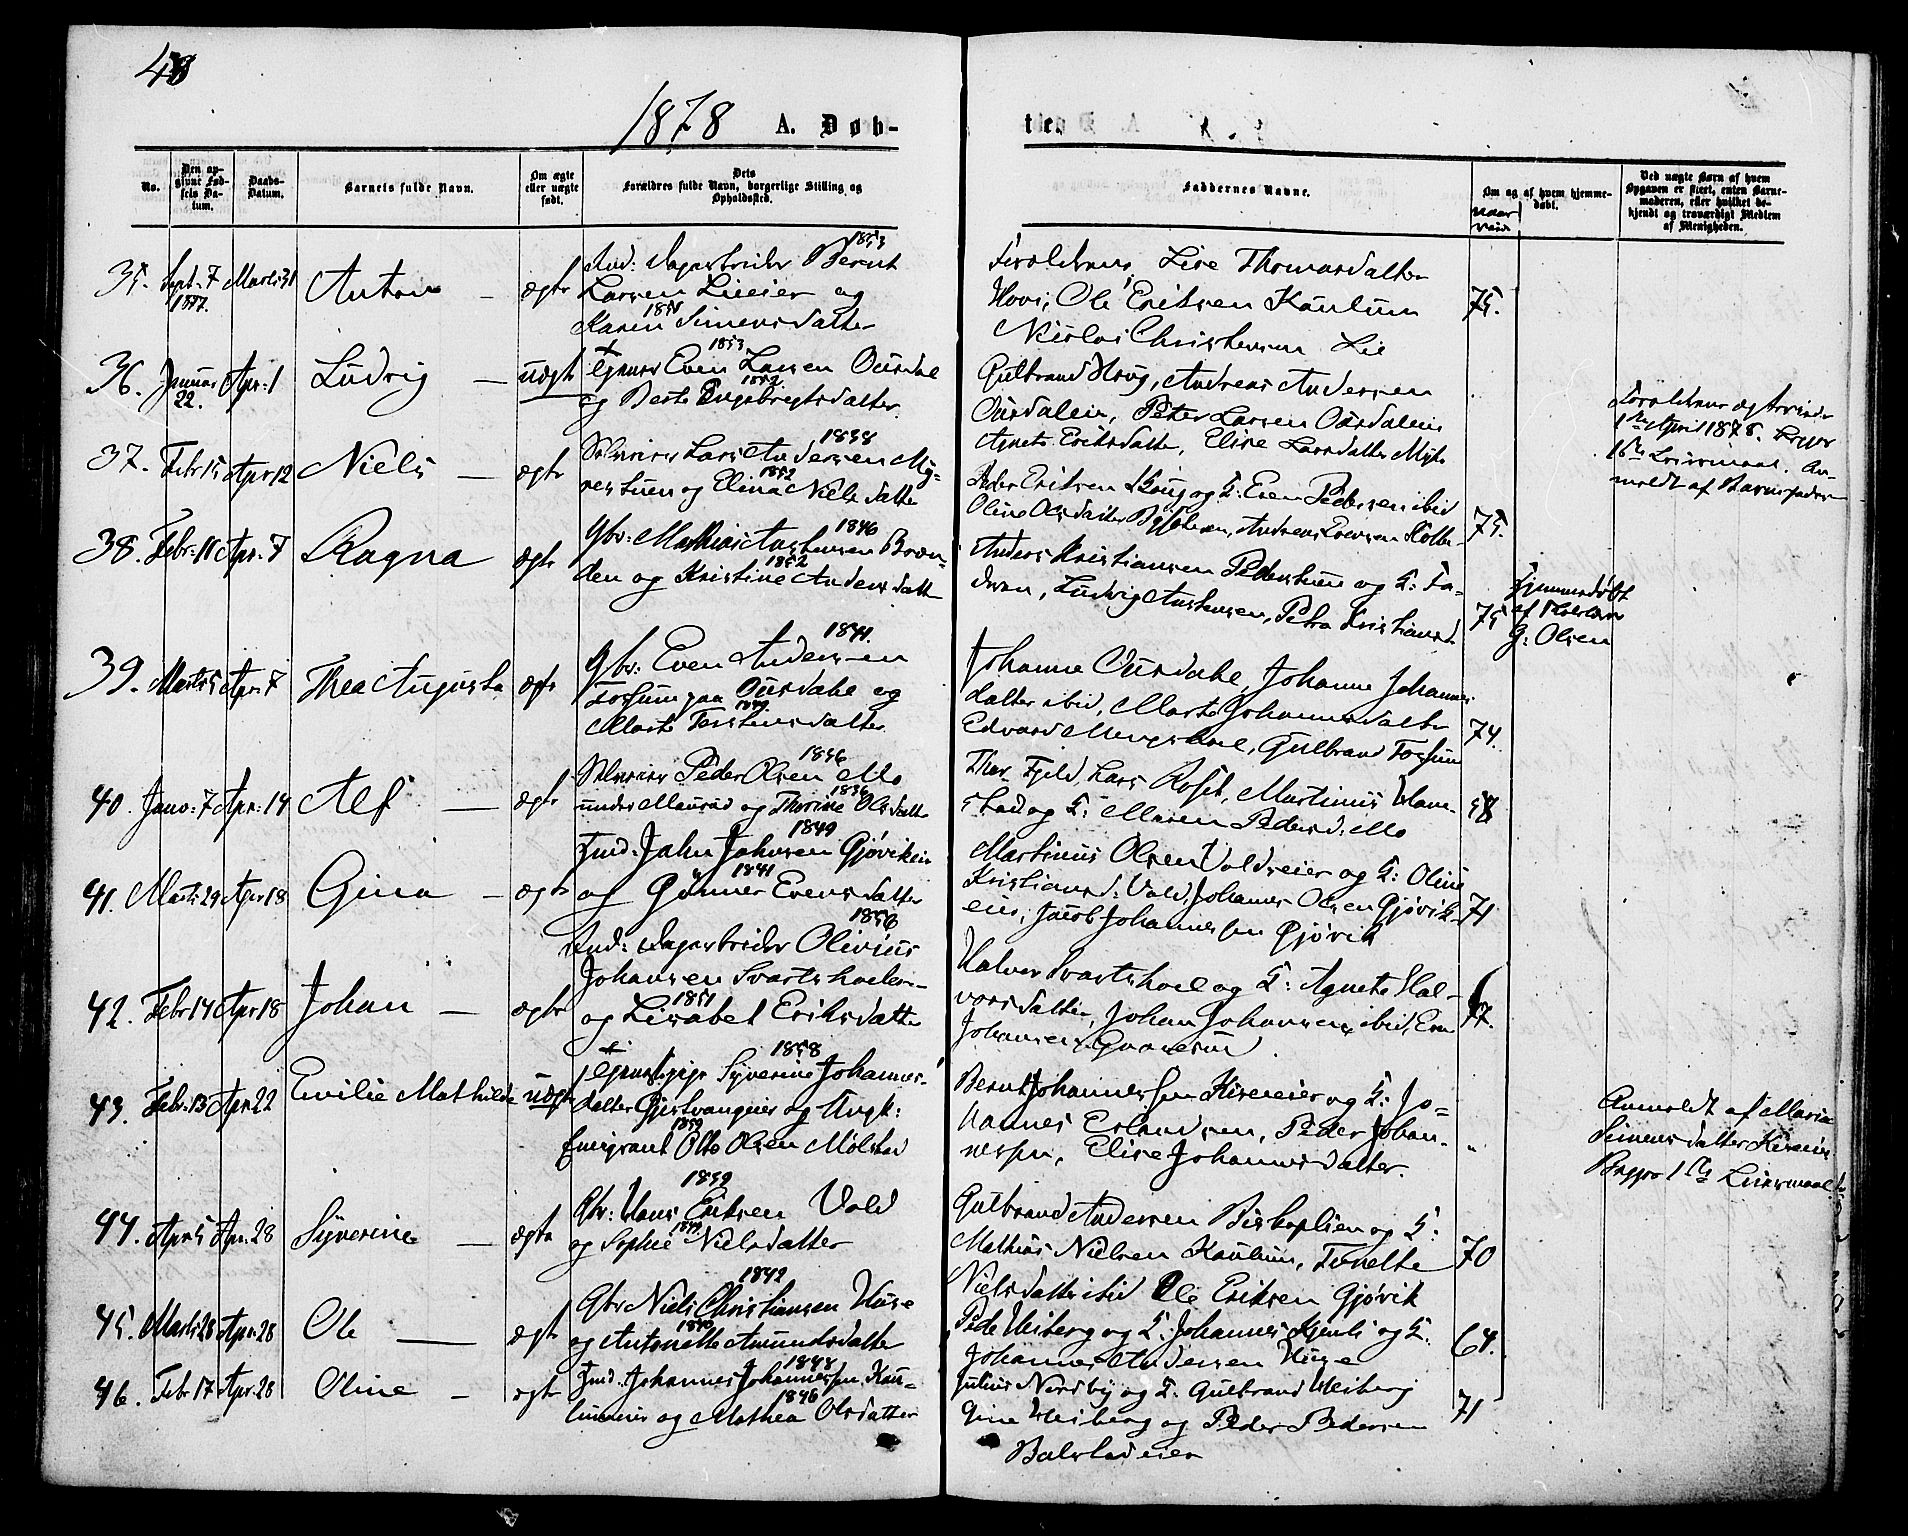 48
1878 A. Døb-
No.
Den opgivne Fødsels Datum.
Daabs-Datum.
Barnets fulde Navn.
Om ægte eller uægte født.
Dets
Forældres fulde Navn, borgerlige Stilling og
Opholdssted.
Faddernes Navne.
Om og af hvem hjemmedøbt.
Ved uægte Børn af hvem
Opgaven er skeet, enten Barnemoderen, eller hvilket bekjendt og troværdigt Medlem
af Menigheden.
35. Sept. 7 1877. Marts 31 Anton — ægte
1853
Ind: Dagarbeider Bernt
Larsen Lieeier og
1851
Karen Simensdatter
Forældrene, Lise Thomasdatter
Hovs, Ole Eriksen Kaulum
Nicolai Christensen Lie
75.
36. Januar 22. Apr: 1 Ludvig — uægte
1853
Even Larsen Ousdal
1852
og Berte Engebrigtsdatter
Gulbrand Houg, Andreas Andersen
Ousdalen, Peter Larsen Ousdalen
Agnete Eriksdatter, Elise Larsdatter
Forældrene og
1ste April 1878.
1ste Leiermaal. An-
meldt af Barnefaderen
37. Febr 15 Apr 12 Niels — ægte
1838
Lars Andersen My-
1852
restuen og Elina Nielsdatter
Peder Eriksen Skoug og K: Even Pedersen ibid
Oline Olsdatter
75.
38. Febr: 18 Apr: 7 Ragna ægte
1846
Gbr: Mathias Anshensen Bran-
1852
den og Kristine Andersdatter
Anders Kristiansen Pederstuen og K: Fa-
deren, Ludvig Anstensen, Petra Kristiansd
75
Hjemmedøbt
af
G: Olsen
39. Marts 5 Apr: 7 Thea Augusta ægte
1841.
Gbr: Even Andersen
Fossum paa Ousdahl og
1849
Marte Torstensdatter
Johanne Ousdahl, Johanne Johannes
datter ibid, Marte Johannesdatter
Edvard Mengshoel, Gulbrand Fossum
74.
40. Janu: 7 Apr: 14 Alf — ægte
1836
Peder Olsen Mo
1836
under Maurud og Thorine Olsdatter
Thor Fjeld, Lars Roset, Martinus
stad og K: Maren Pedersd: Mo
58
41. Marts 29 Apr 18 Gina — ægte
1849
Ind: John Johnsen Gjøvikeie
1841
og Gunner Evensdatter
Martinus Olsen Valdseier og K: Oline
Kristiansd: Vald, Johannes Olsen Gjøvik-
eie, Jacob Johannessen Gjøvik
71
42. Febr 14 Apr 18 Johan — ægte
1856
Ind: Dagarbeider Olivius
Johansen Svartshoelen
1851
og Lisabet Eriksdatter
Halvor Svartshoel og K: Agnete Hal-
vorsdatter, Johan Johansen ibid, Even
Johansen
77.
43. Febr: 13 Apr 22 Emilie Mathilde uægte
1858
Syverine Johannes-
datter Gjestvangeie og Ungk:
1859
Emigrant Otto Olsen Molstad
Bernt Johannessen Kiseeier og K: Jo-
hannes Erlandsen, Peder Johan-
nessen, Elise Johannesdatter.
"
Anmeldt af Maria
Simensdatter Kiseeie
Begges 1ste Leiermaal
44. Apr 5 Apr. 28 Syverine — ægte
1839
Gbr: Hans Eriksen Vold
1849
og Sophie Nielsdatter
Gulbrand Andersen Biskoplien og K:
Mathias Nielsen Kaulum, Tonette
Nielsdatter ibid Ole Eriksen Gjøvik
70
45. Marts 28 Apr: 28 Ole — ægte
1842
Gbr Niels Christiansen Huse
1840
og Antonette Amundsdatter
Peder Weiberg og K: Johannes og K.
Johannes Andersen Huse
64.
46. Febr 17 Apr. 28 Oline — ægte
1848
Ind. Johannes Johannessen Kau-
1846
lumeie og Mathea Olsdatter
Julius Nordby og K. Gulbrand Weiberg
Gine Weiberg og Peder Pedersen
Balstadeier
71